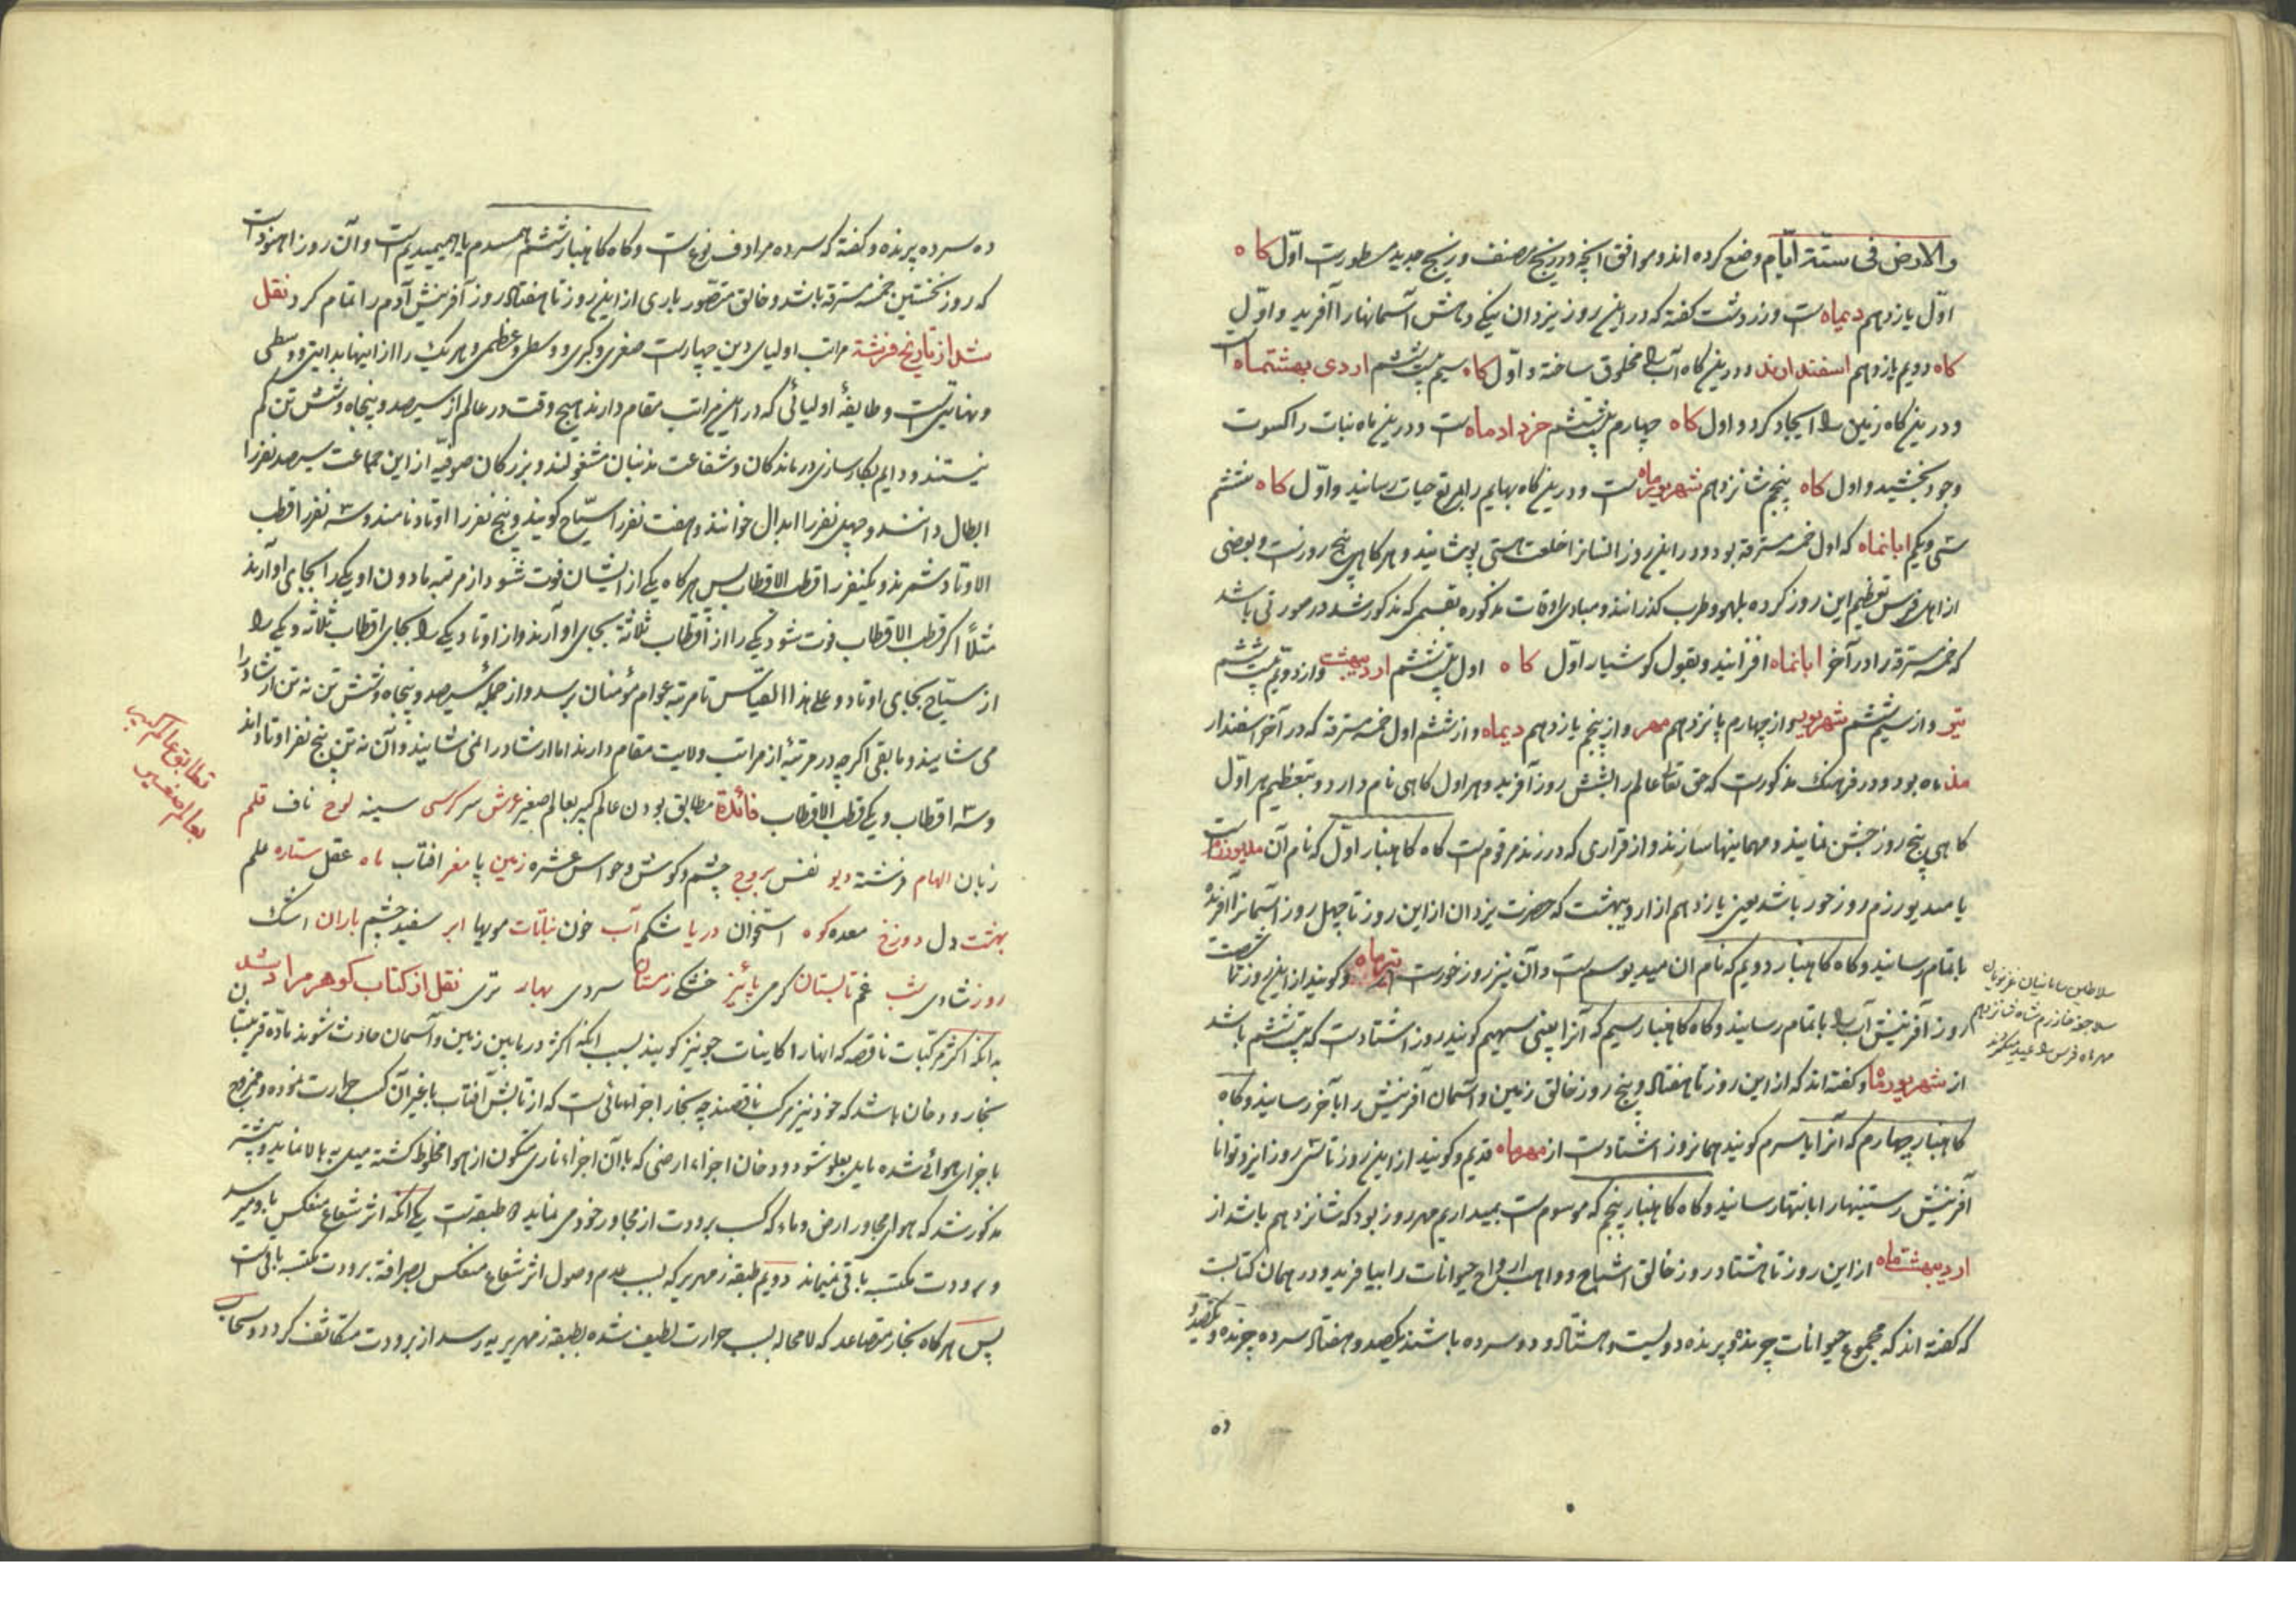 والارض فی ستة ایام وضع کرده اند و موافق آنچه در زیج مصنف و زیج جدید مسطورست اول کاه
اول یازدهم دیماه است و زردشت کفته که در این روز یزدان نیکی دهش آسمانها را آفرید و اول
کاه دویم یازدهم اسفندارمذ و درین کاه آب را مخلوق ساخته و اول کاه سیم بیست ششم اردی بهشتماه است
و درین کاه زمین را ایجاد کرد و اول کاه چهارم بیست ششم خردادماه است و درین ماه نبات را کسوت
وجود بخشید و اول کاه پنجم شانزدهم شهریورماه است و درین کاه بهایم را خلعت حیات رسانید و اول کاه ششم
سی و یکم ابانماه که اول خمسه مسترقه بود و در این روز انسانرا خلعت هستی پوشانید و هر کاهی پنج روزست و بعضی
از اهل فرس تعظیم این روز کرده بلهو و طرب کذرانند و مبادی اوقات مذکوره بقسمی که مذکور شد در صورتی باشد
که خمسه مسترقه را در آخر ابانماه افزایند و بقول کوشیار اول کاه اول بیست ششم اردیبهشت و از دویم بیست ششم
تیر و از سیم ششم شهریور و از چهارم پانزدهم مهر و از پنجم یازدهم دیماه و از ششم اول خمسه مسترقه که در آخر اسفندار
مذ ماه بود و در فرهنک مذکورست که حق تعالی عالم را بشش روز آفرید و هر اول کاهی نام دارد و بتعظیم هر اول
کاهی پنج روز جشن نمایند و مهمانیها سازند و از قراری که در زند مرقوم است کاه کاهنبار اول که نام آن میدیورزم است
یا میدیورزم روز خور باشد یعنی یازدهم از اردیبهشت که حضرت یزدان از این روز تا چهل روز آسمانرا آفرنده
باتمام رسانید و کاه کاهنبار دویم که نام ان میدیوسم است و آن نیز روز خورست از تیرماه و کویند از این روز تا شصت
روز آفرینش آب را باتمام رسانید و کاه کاهنبار سیم که آنرا پیتی سهیم کویند روز اشتادست که بیست ششم باشد
از شهریورماه و کفته اند که از این روز تا هفتاد و پنج روز خالق زمین و آسمان آفرینش را بآخر رسانید و کاه
کاهنبار چهارم که آنرا ایاسرم کویند همانروز اشتادست از مهرماه قدیم و کویند از این روز تا سی روز ایزد توانا
آفرینش رستنیها را بانتها رسانید و کاه کاهنبار پنجم که موسوم است بمیداریم مهر روز بود که شانزدهم باشد از
اردیبهشت ماه از این روز تا هشتاد روز خالق اشباح و واهب ارواح حیوانات را بیافرید و در همان کتابست
که کفته اند که مجموع حیوانات چرنده و پرنده دویست و هشتاد و دو سرده باشند یکصد و هفتاد سرده چرنده و یکصد و
ده
سلاطین سامانیان غزنویان
سلاجقه خوارزم شاه شانزدهم
مهر ماه فرس را عید میکرفتند
ده سرده پرنده و کفته که سرده مرادف نوع است و کاه کاهنبار ششم همسدم یا همیمیدیم است و آن روز اهنودست
که روز نخستین خمسه مسترقه باشد و خالق متصور باری از این روز تا هفتاد روز آفرینش آدم را اتمام کرد نقل
شد از تاریخ فرشته مراتب اولیای دین چهارست صغری و کبری و وسطی و عظمی و هر یک را از اینها بدایتی و وسطی
و نهایتی است و طایفهٔ اولیائی که در این مراتب مقام دارند هیچ وقت در عالم از سیصد و پنجاه و شش تن کم
نیستند و دایم بکارسازی درماندکان و شفاعت مذنبان مشغولند و بزرکان صوفیه از این جماعت سیصد نفر را
ابطال دانند و چهل نفر را ابدال خوانند و هفت نفر را سیاح کویند و پنج نفر را اوتاد نامند و سه نفر را قطب
الاوتاد شمرند و یکنفر را قطب الاقطاب پس هر کاه یکی از ایشان فوت شود از مرتبه مادون او یکی را بجای او آرند
مثلاً اکر قطب الاقطاب فوت شود یکی را از اقطاب ثلاثه بجای او آرند و از اوتاد یکی را بجای اقطاب ثلاثه و یکی را
از سیاح بجای اوتاد و علی هذا القیاس تا مرتبه عوام مؤمنان برسد و از جملهٔ سیصد و پنجاه و شش تن نه تن ارشاد را
می شایند و مابقی اکرچه در مرتبهٔ از مراتب ولایت مقام دارند اما ارشاد را نمی شایند و آن نه تن پنج نفر اوتادند
و سه اقطاب و یکی قطب الاقطاب فائدة مطابق بودن عالم کبیر بعالم صغیر عرش سر کرسی سینه لوح ناف قلم
زبان الهام فرشته دیو نفس بروج چشم و کوش و حواس عشره زمین پا مغر افتاب ماه عقل ستاره علم
بهشت دل دوزخ معده کوه استخوان دریا شکم آب خون نباتات مویها ابر سفید چشم باران اشک
روز شادی شب غم تابستان کرمی پائیز خشکی زمستان سردی بهار تری نقل از کتاب کوهر مراد شد
بدانکه اکثر مرکبات ناقصه که انها را کاینات جو نیز کویند بسبب انکه اکثر در مابین زمین و آسمان حادث شوند ماده قریبشان
بخار و دخان باشد که خود نیز مرکب ناقصند چه بخار اجزاء مائی است که از تابش آفتاب یا غیر آن کسب حرارت نموده و ممزوج
باجزای هوائی شده مایل بعلو شود و دخان اجزاء ارضی که با آن اجزاء ناری متکون از هوا مخلوط کشته میل به بالا نماید و پیشتر
مذکور شد که هوای مجاور ارض و ماء که کسب برودت از مجاور خود می نماید دو طبقه است یکی انکه اثر شعاع منعکس باو میرسد
و برودت مکتسبه باقی نمیماند دویم طبقه زمهریر که بسبب عدم وصول اثر شعاع منعکس بصرافة برودت مکتسبه باقی است
پس هر کاه بخار متصاعد که لامحاله بسبب حرارت لطیف شده بطبقه زمهریریه رسد از برودت متکاثف کردد و سحاب
تطابق عالم کبیر
بعالم صغیر